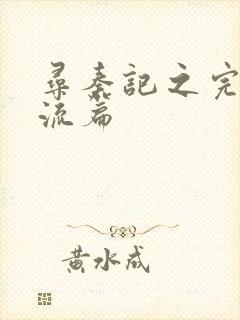 尋秦記之完
流篇
黄水成